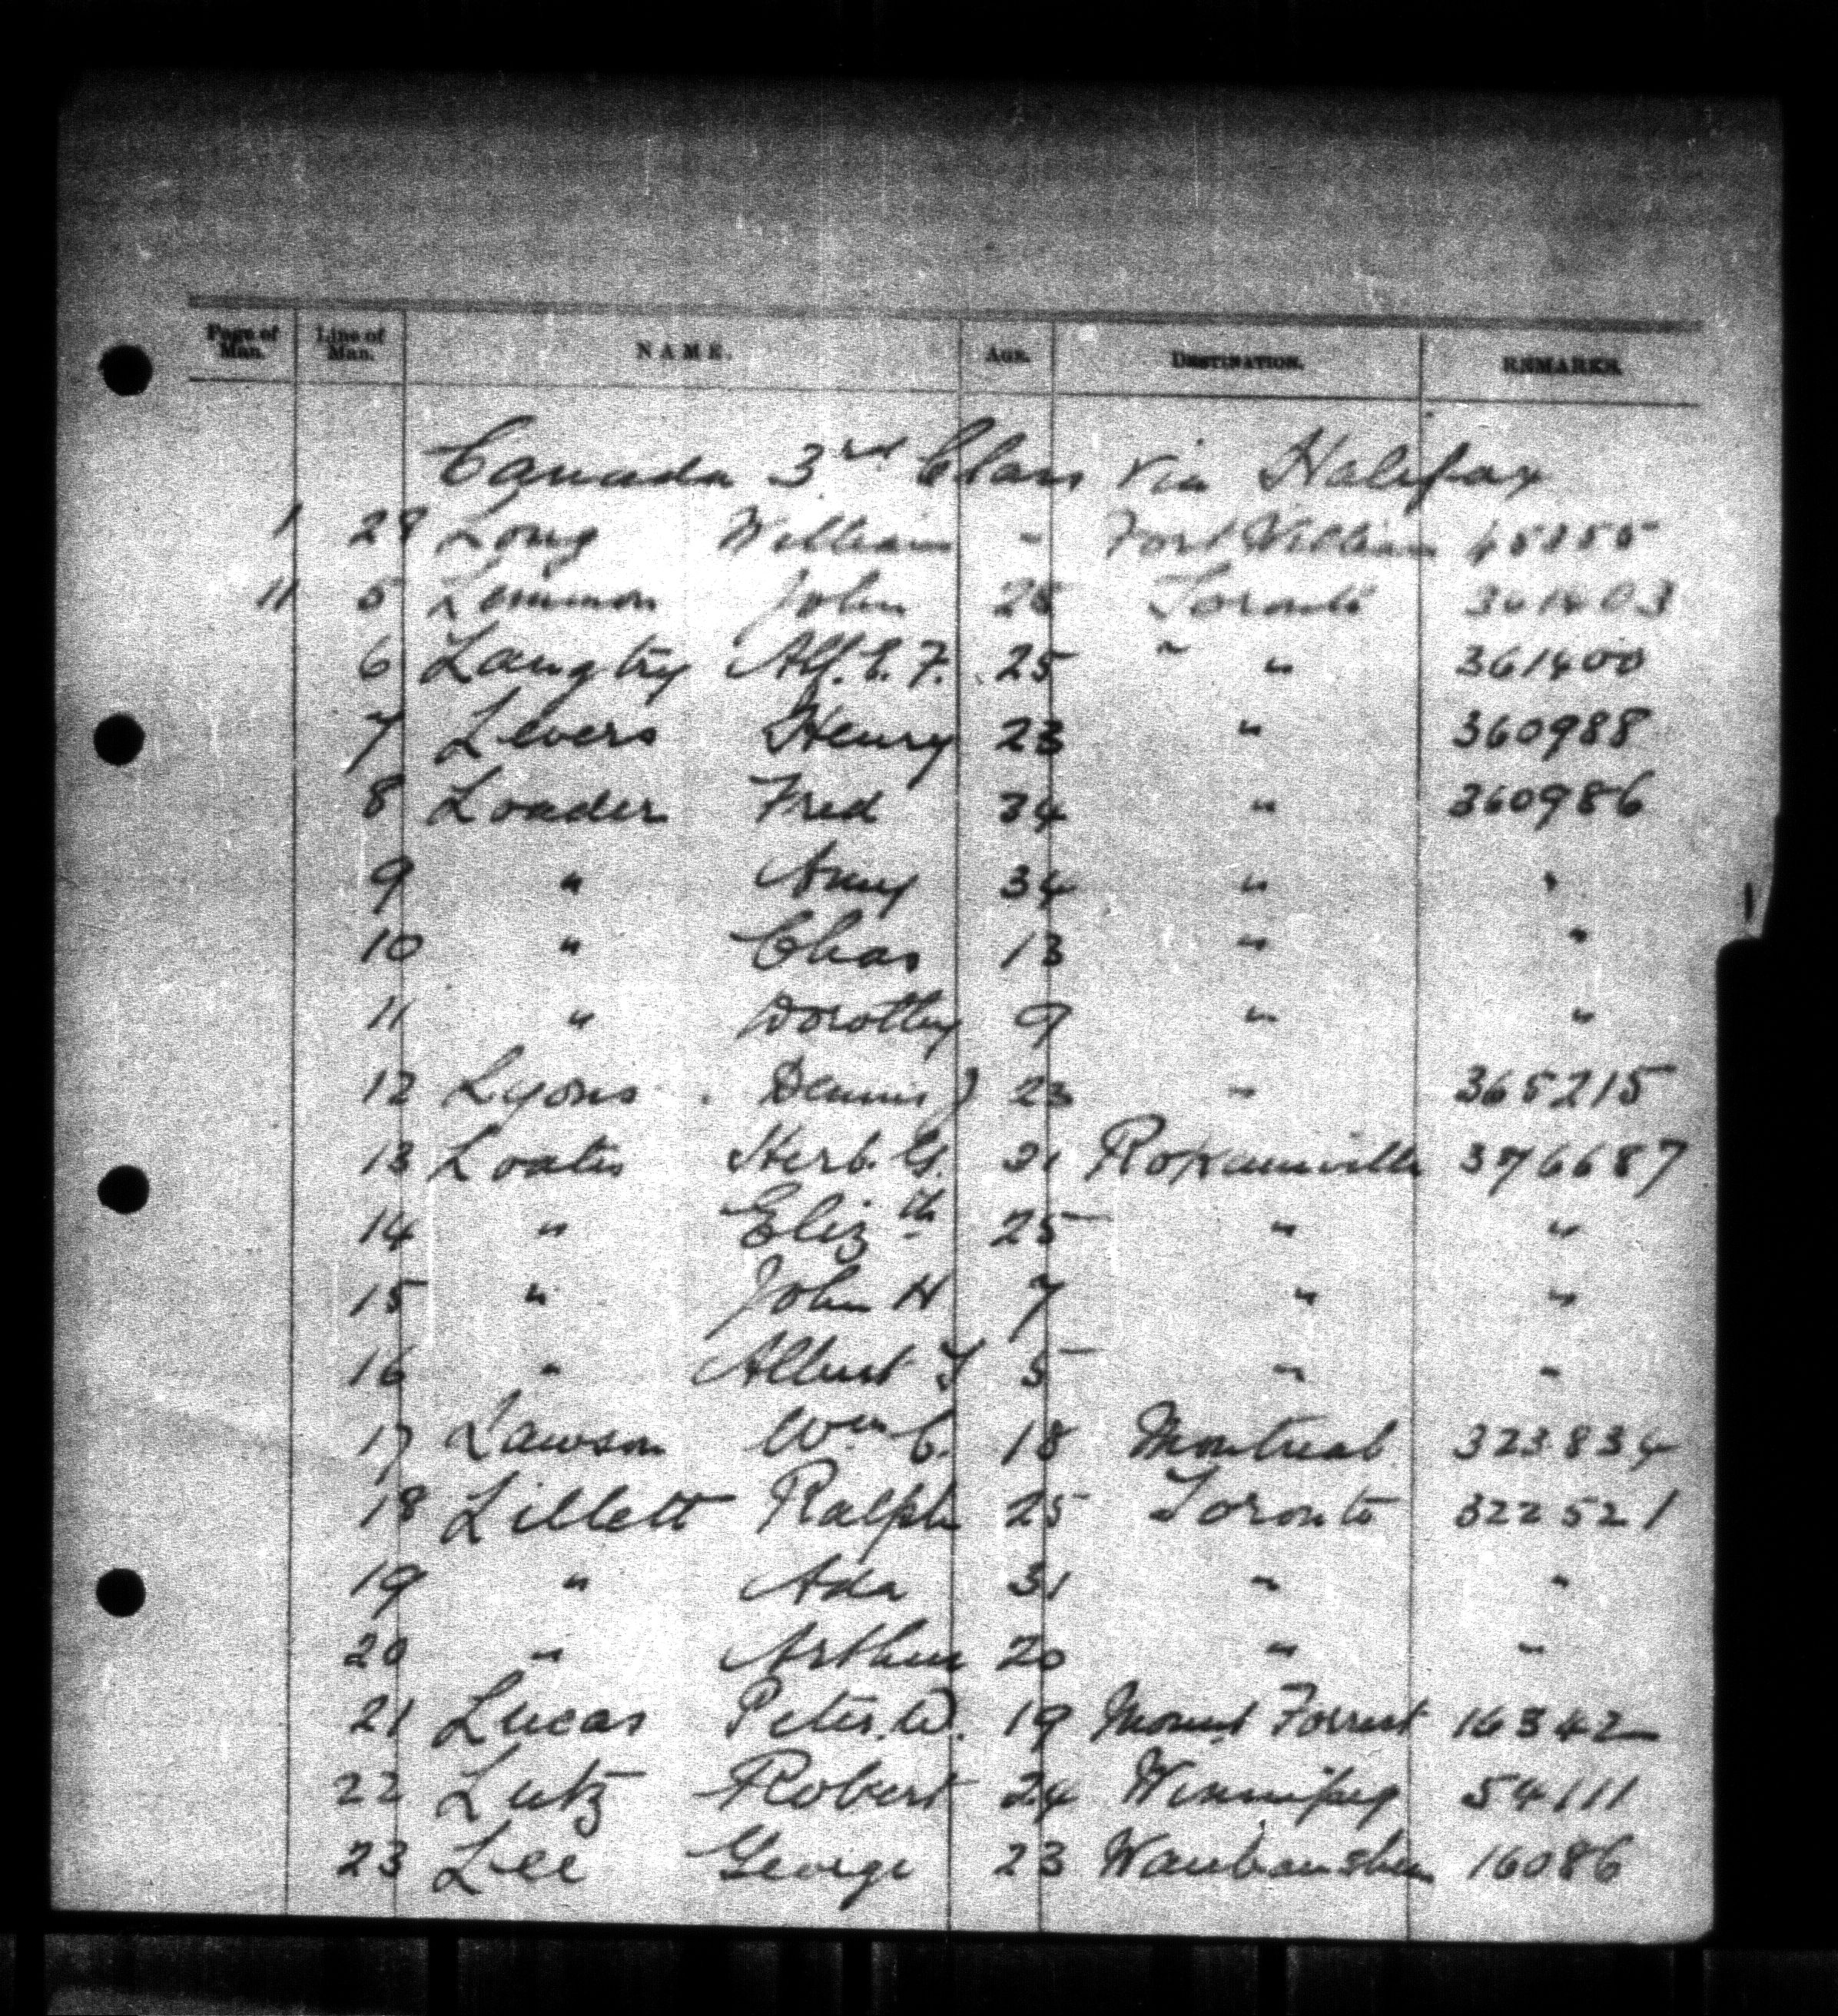 Page of Man. Line of Man. NAME. Age. Destination. REMARKS.
Canada 3rd Class via Halifax
1 28 Long William - Fort William
11 5 Lemmon John Toronto 361403
6 Langtry Alf. E. F. 25 " " 361400
7 Levers Henry 23 " 360988
8 Loader Fred 34 " 360986
9 " Amy 34 " "
10 " Chas 13 " "
11 " Dorothy 9 " "
12 Lyons Dennis J 23 " 365215
13 Loates Herb. G. 31 376687
14 " Elizth 25 " "
15 " John H 7 " "
16 " Albert 5 " "
17 Lawson Wm C. 18 Montreal 323834
18 Lillett Ralph 25 Toronto 322521
19 " Ada 31 " "
20 " Arthur 20 " "
21 Lucas Peter. W. 19 Mount Forrest 16342
22 Lutz Robert 24 Winnipeg 54111
23 Lee George 23 Waubaushen 16086